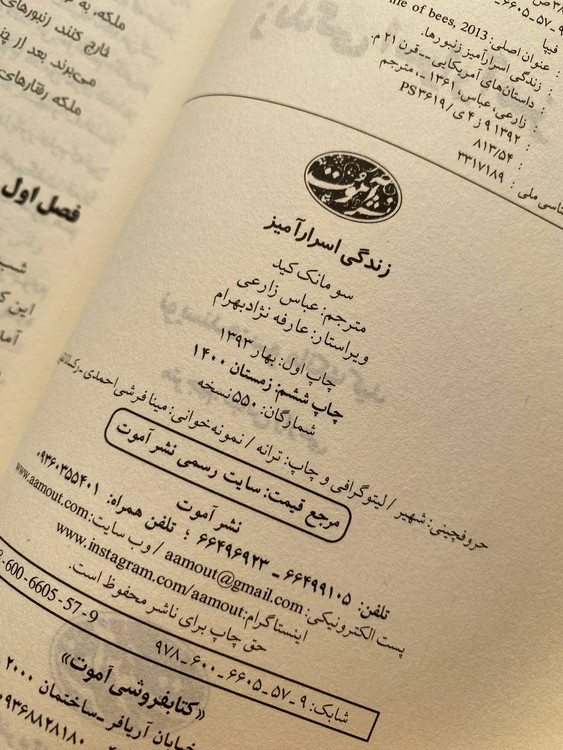 ملکه،
خارج کنند. زنبورهای
می‌برند بعد از
ملکه رفتارهای
فصل اول
شب
این
آما
life of bees, 2013
فیپا
عنوان اصلی:
زندگی اسرارآمیز زنبورها.
داستان‌های آمریکایی -- قرن ۲۱ م.
زارعی، عباس، ۱۳۶۱ -، مترجم
PS۳۶۱۹/ی۴ز۹ ۱۳۹۲
۸۱۳/۵۴
۳۳۱۷۱۸۹
نشر آموت
زندگی اسرارآمیز
سو مانک کید
مترجم: عباس زارعی
ویراستار: عارفه نژادبهرام
چاپ اول: بهار ۱۳۹۳
چاپ ششم: زمستان ۱۴۰۰
شمارگان: ۵۵۰ نسخه
حروفچینی: شهیر / لیتوگرافی و چاپ: ترانه / نمونه‌خوانی: مینا فرشی‌احمدی
مرجع قیمت: سایت رسمی نشر آموت
نشر آموت
تلفن: ۶۶۴۹۹۱۰۵ - ۶۶۴۹۶۹۲۳ ؛ تلفن همراه: ۰۹۳۶۰۳۵۵۴۰۱
پست الکترونیکی: aamout@gmail.com / وب سایت: www.aamout.com
اینستاگرام: www.instagram.com/aamout
حق چاپ برای ناشر محفوظ است.
شابک: ۹-۵۷-۶۶۰۵-۶۰۰-۹۷۸ 8-600-6605-57-9
«کتابفروشی آموت»
خیابان آریافر - ساختمان ۲۰۰۰
۰۹۳۶۸۸۲۸۱۸۰